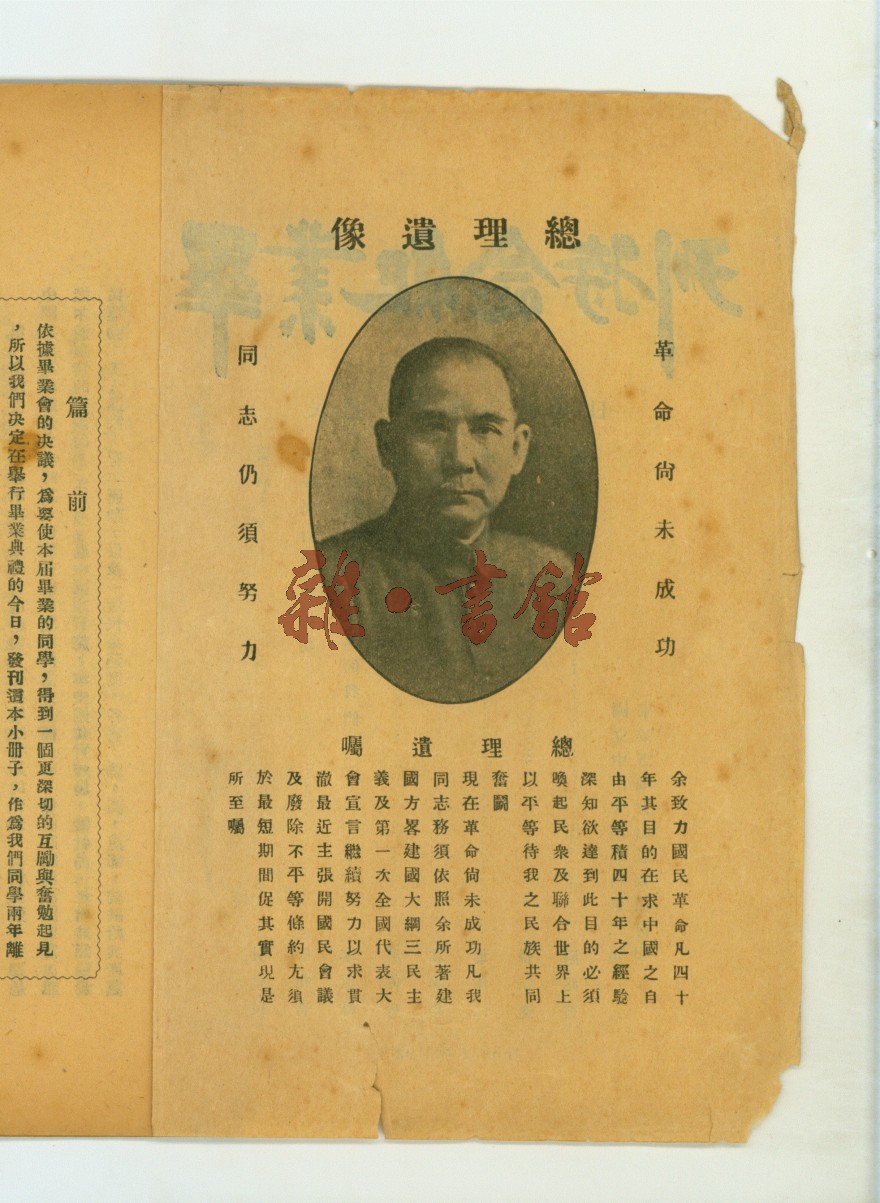 總理遺像
革命尙未成功
同志仍須努力
總理遺囑
余致力國民革命凡四十
年其目的在求中國之自
由平等積四十年之經驗
深知欲達到此目的必須
喚起民衆及聯合世界上
以平等待我之民族共同
奮鬭
現在革命尙未成功凡我
同志務須依照余所著建
國方畧建國大綱三民主
義及第一次全國代表大
會宣言繼續努力以求貫
澈最近主張開國民會議
及廢除不平等條約尤須
於最短期間促其實現是
所至囑
篇前
依據畢業會的决議，爲要使本届畢業的同學，得到一個更深切的互勵與奮勉起見
，所以我們决定在舉行畢業典禮的今日，發刊這本小册子，作爲我們同學兩年離
雜·書館